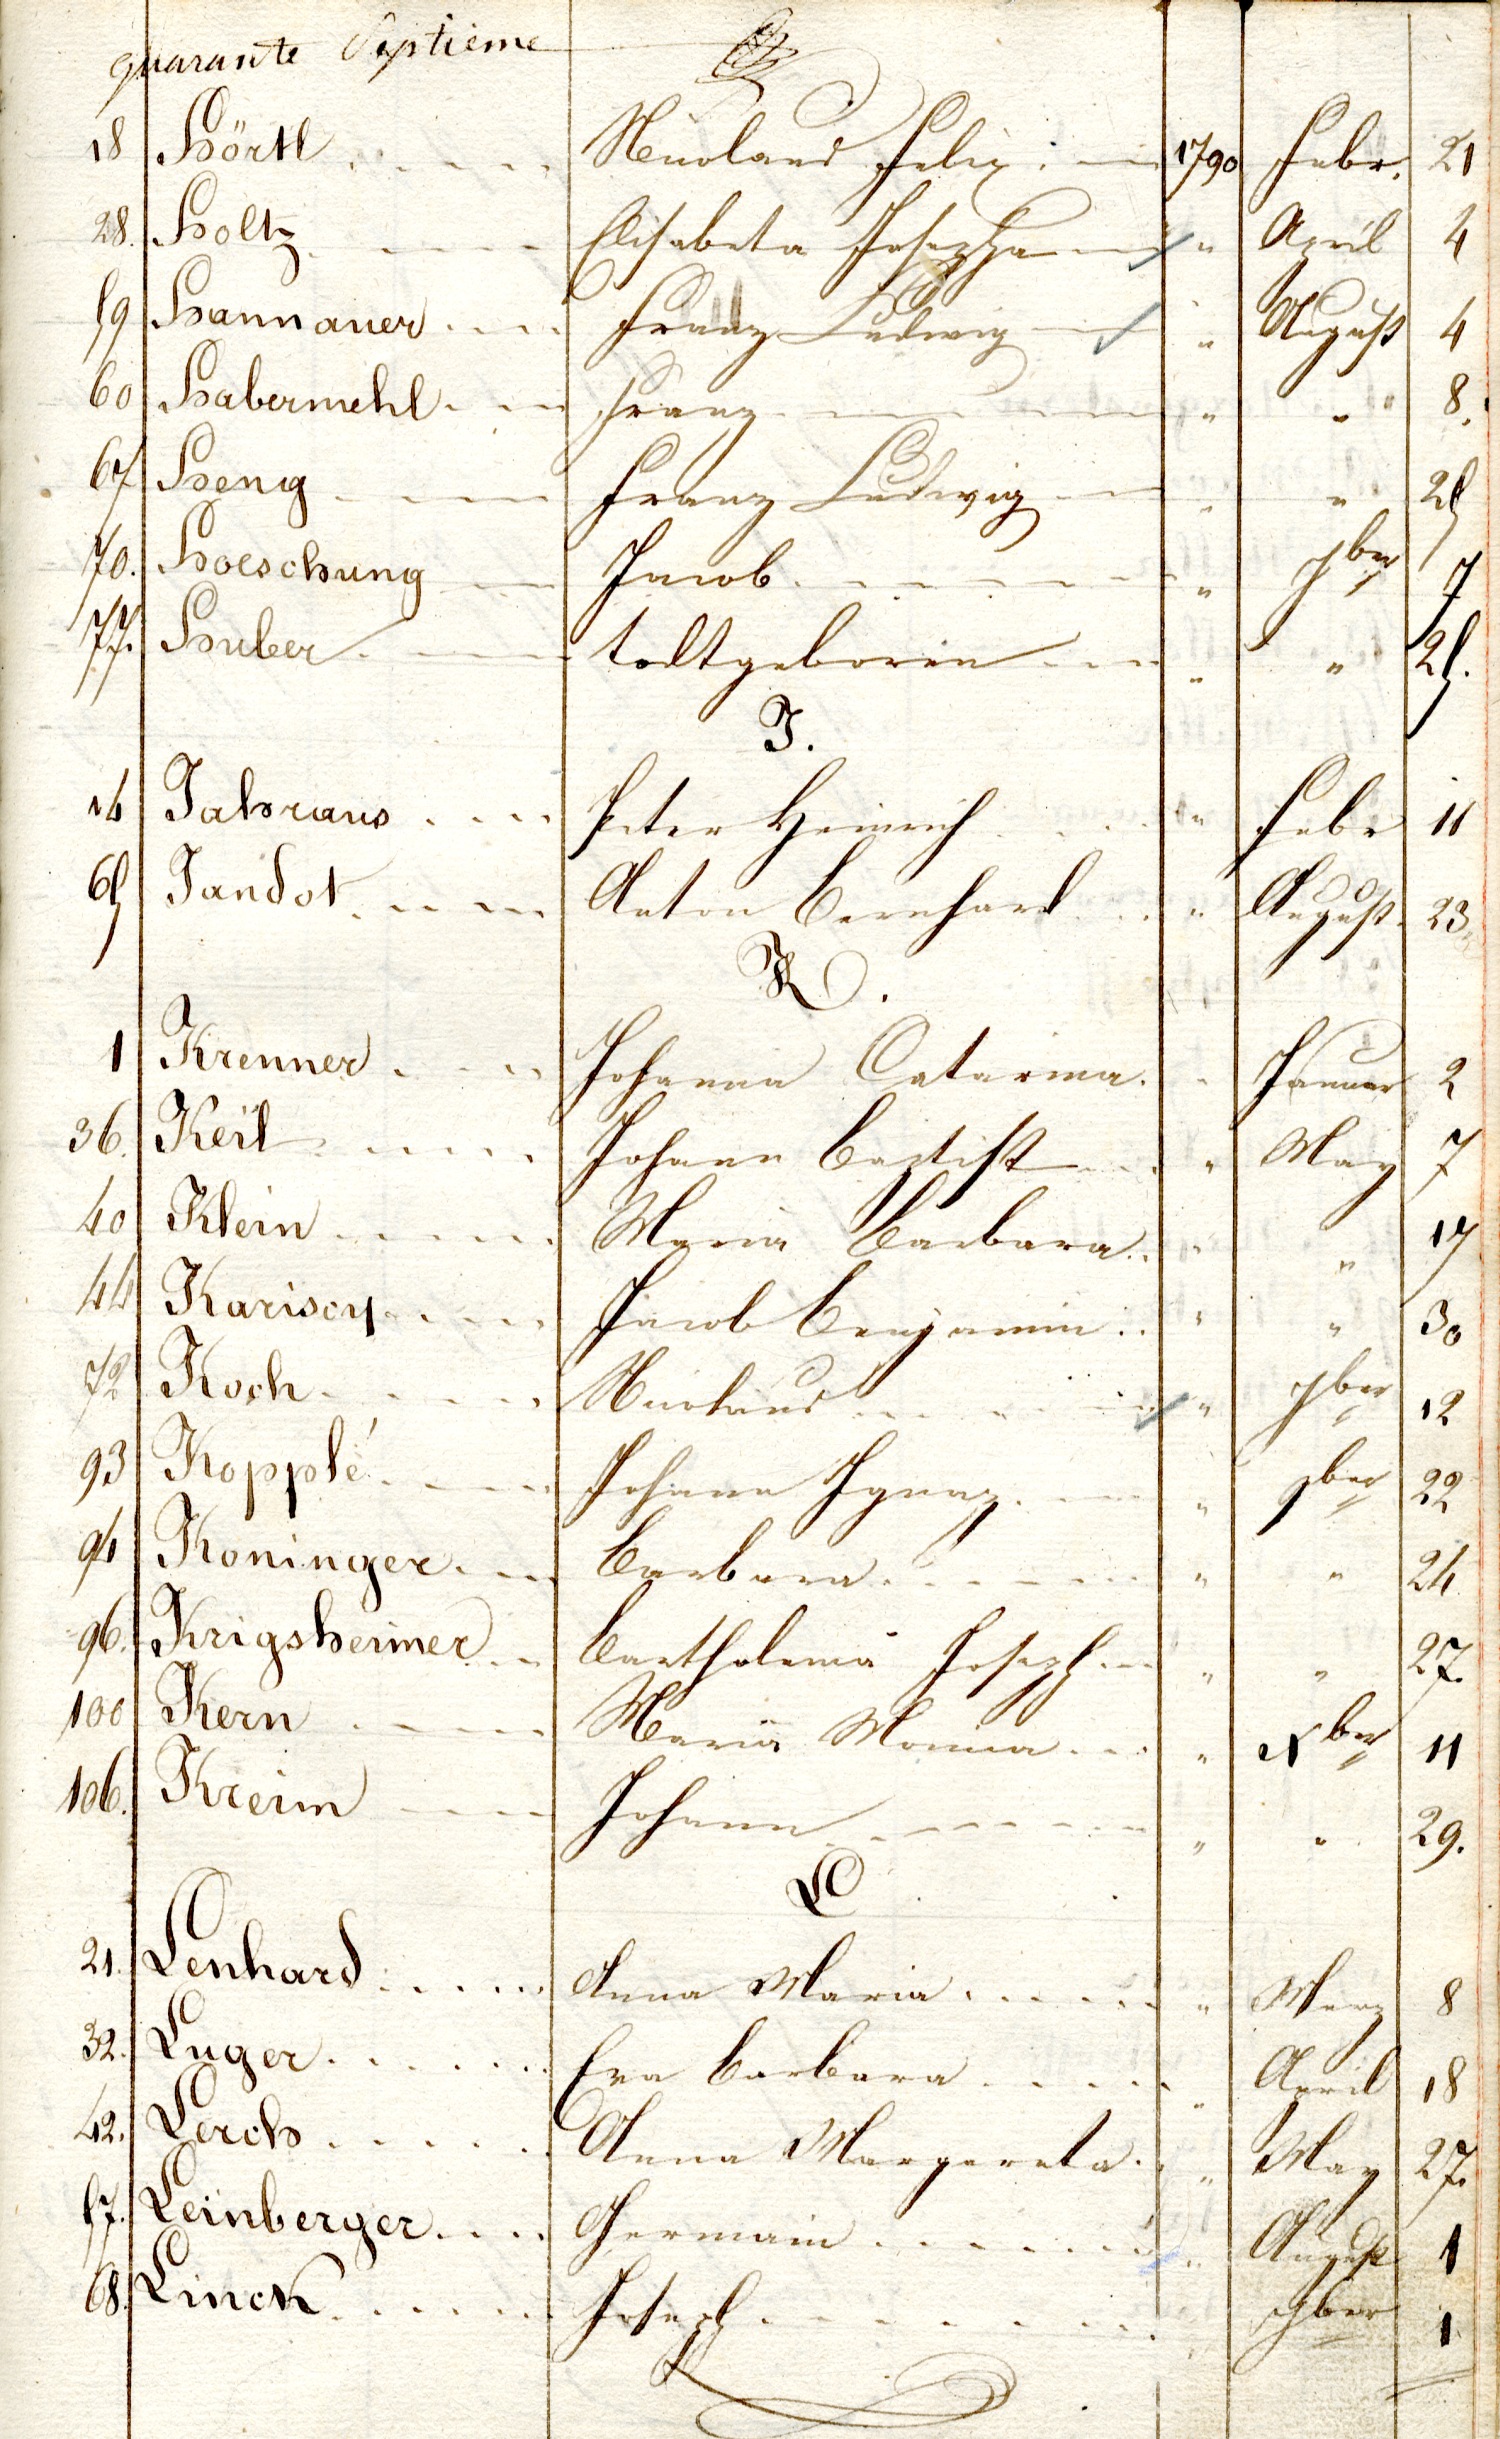 quarante Septieme
18 Hörtl . . . . . Nicolaus Felix . — 1790 Febr. 21
28. Holtz . — — Elisabeta Josepha — " April 4
59 Hannauer . . . . Franz Ludwig — " August 4
60 Habermehl . — Franz — — — " " 8.
67 Heng — — Franz Ludwig — " " 25
70. Hoeschung — Jacob . — — — " 7ber 7
77. Huber — — todtgeboren — — " " 25.
J.
14 Jahraus . . . . Peter Heinrich . . . " Febr 11
65 Jandot . — — Anton Bernhard . . " August . 23
K.
1 Krenner . . . . Johanna Catarina . " Januar 2
36. Keil . . . . . Johann Baptist — " May 7
40 Klein . . . . . Maria Barbara . . " " 17
44 Kariscy . . . . Jacob Benjamin . . " " 30
72 Koch . . . . Nicolaus . . . . " 7ber 12
93 Kopplé . — — Johann Ignaz . — " 9ber 22
94 Koninger . — Barbara . . — — " " 24
96. Krigsheimer . — Bartholemä Joseph . — " " 27.
100 Kern . — — Maria Monica . — " Xber 11
106. Kreim — — Johann — — — " " 29.
L
21. Lenhard . . . . . Anna Maria . . . . . " Merz 8
32. Luger . . . . . Eva Barbara . . . . . " April 18
42. Lerch . . . . . Anna Margareta . . " May 27.
57. Leinberger . . . . Germain . . . . . . " August 1
68. Linck . . . . . . Joseph . . . . . . " 7ber 1